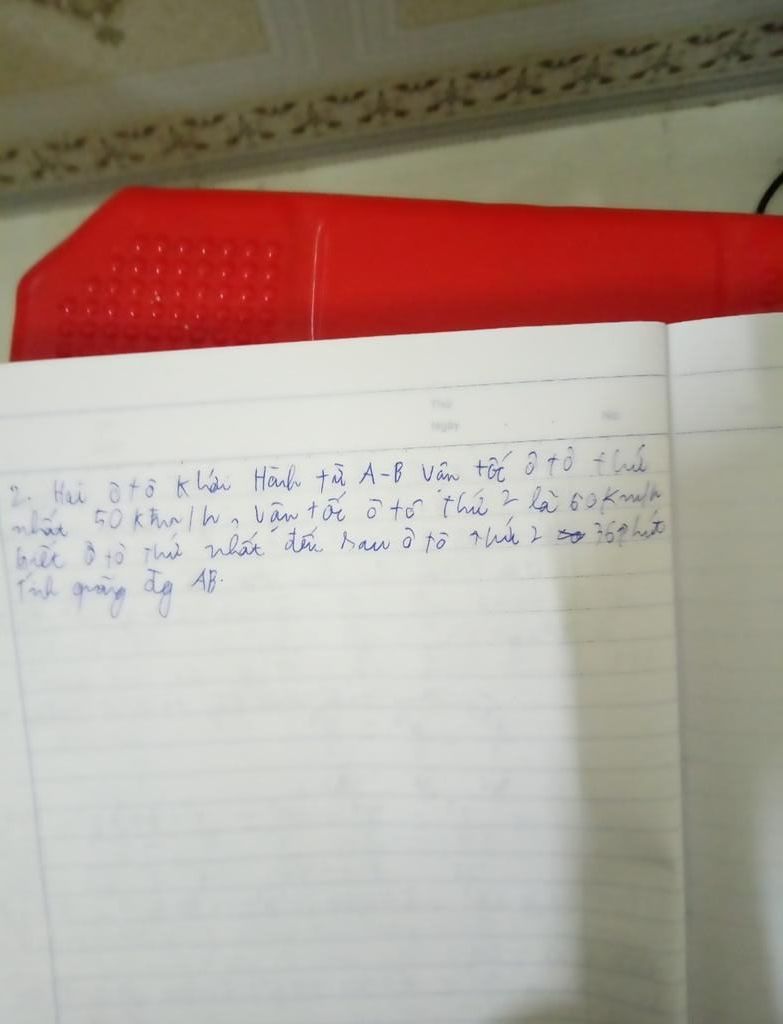 Thứ
Ngày
No.
2. Hai ô tô khởi Hành từ A-B vận tốc ô tô thứ
nhất 50 km/h, vận tốc ô tô thứ 2 là 60 Km/h
biết ô tô thứ nhất đến sau ô tô thứ 2 36 phút
Tính quãng đg AB.